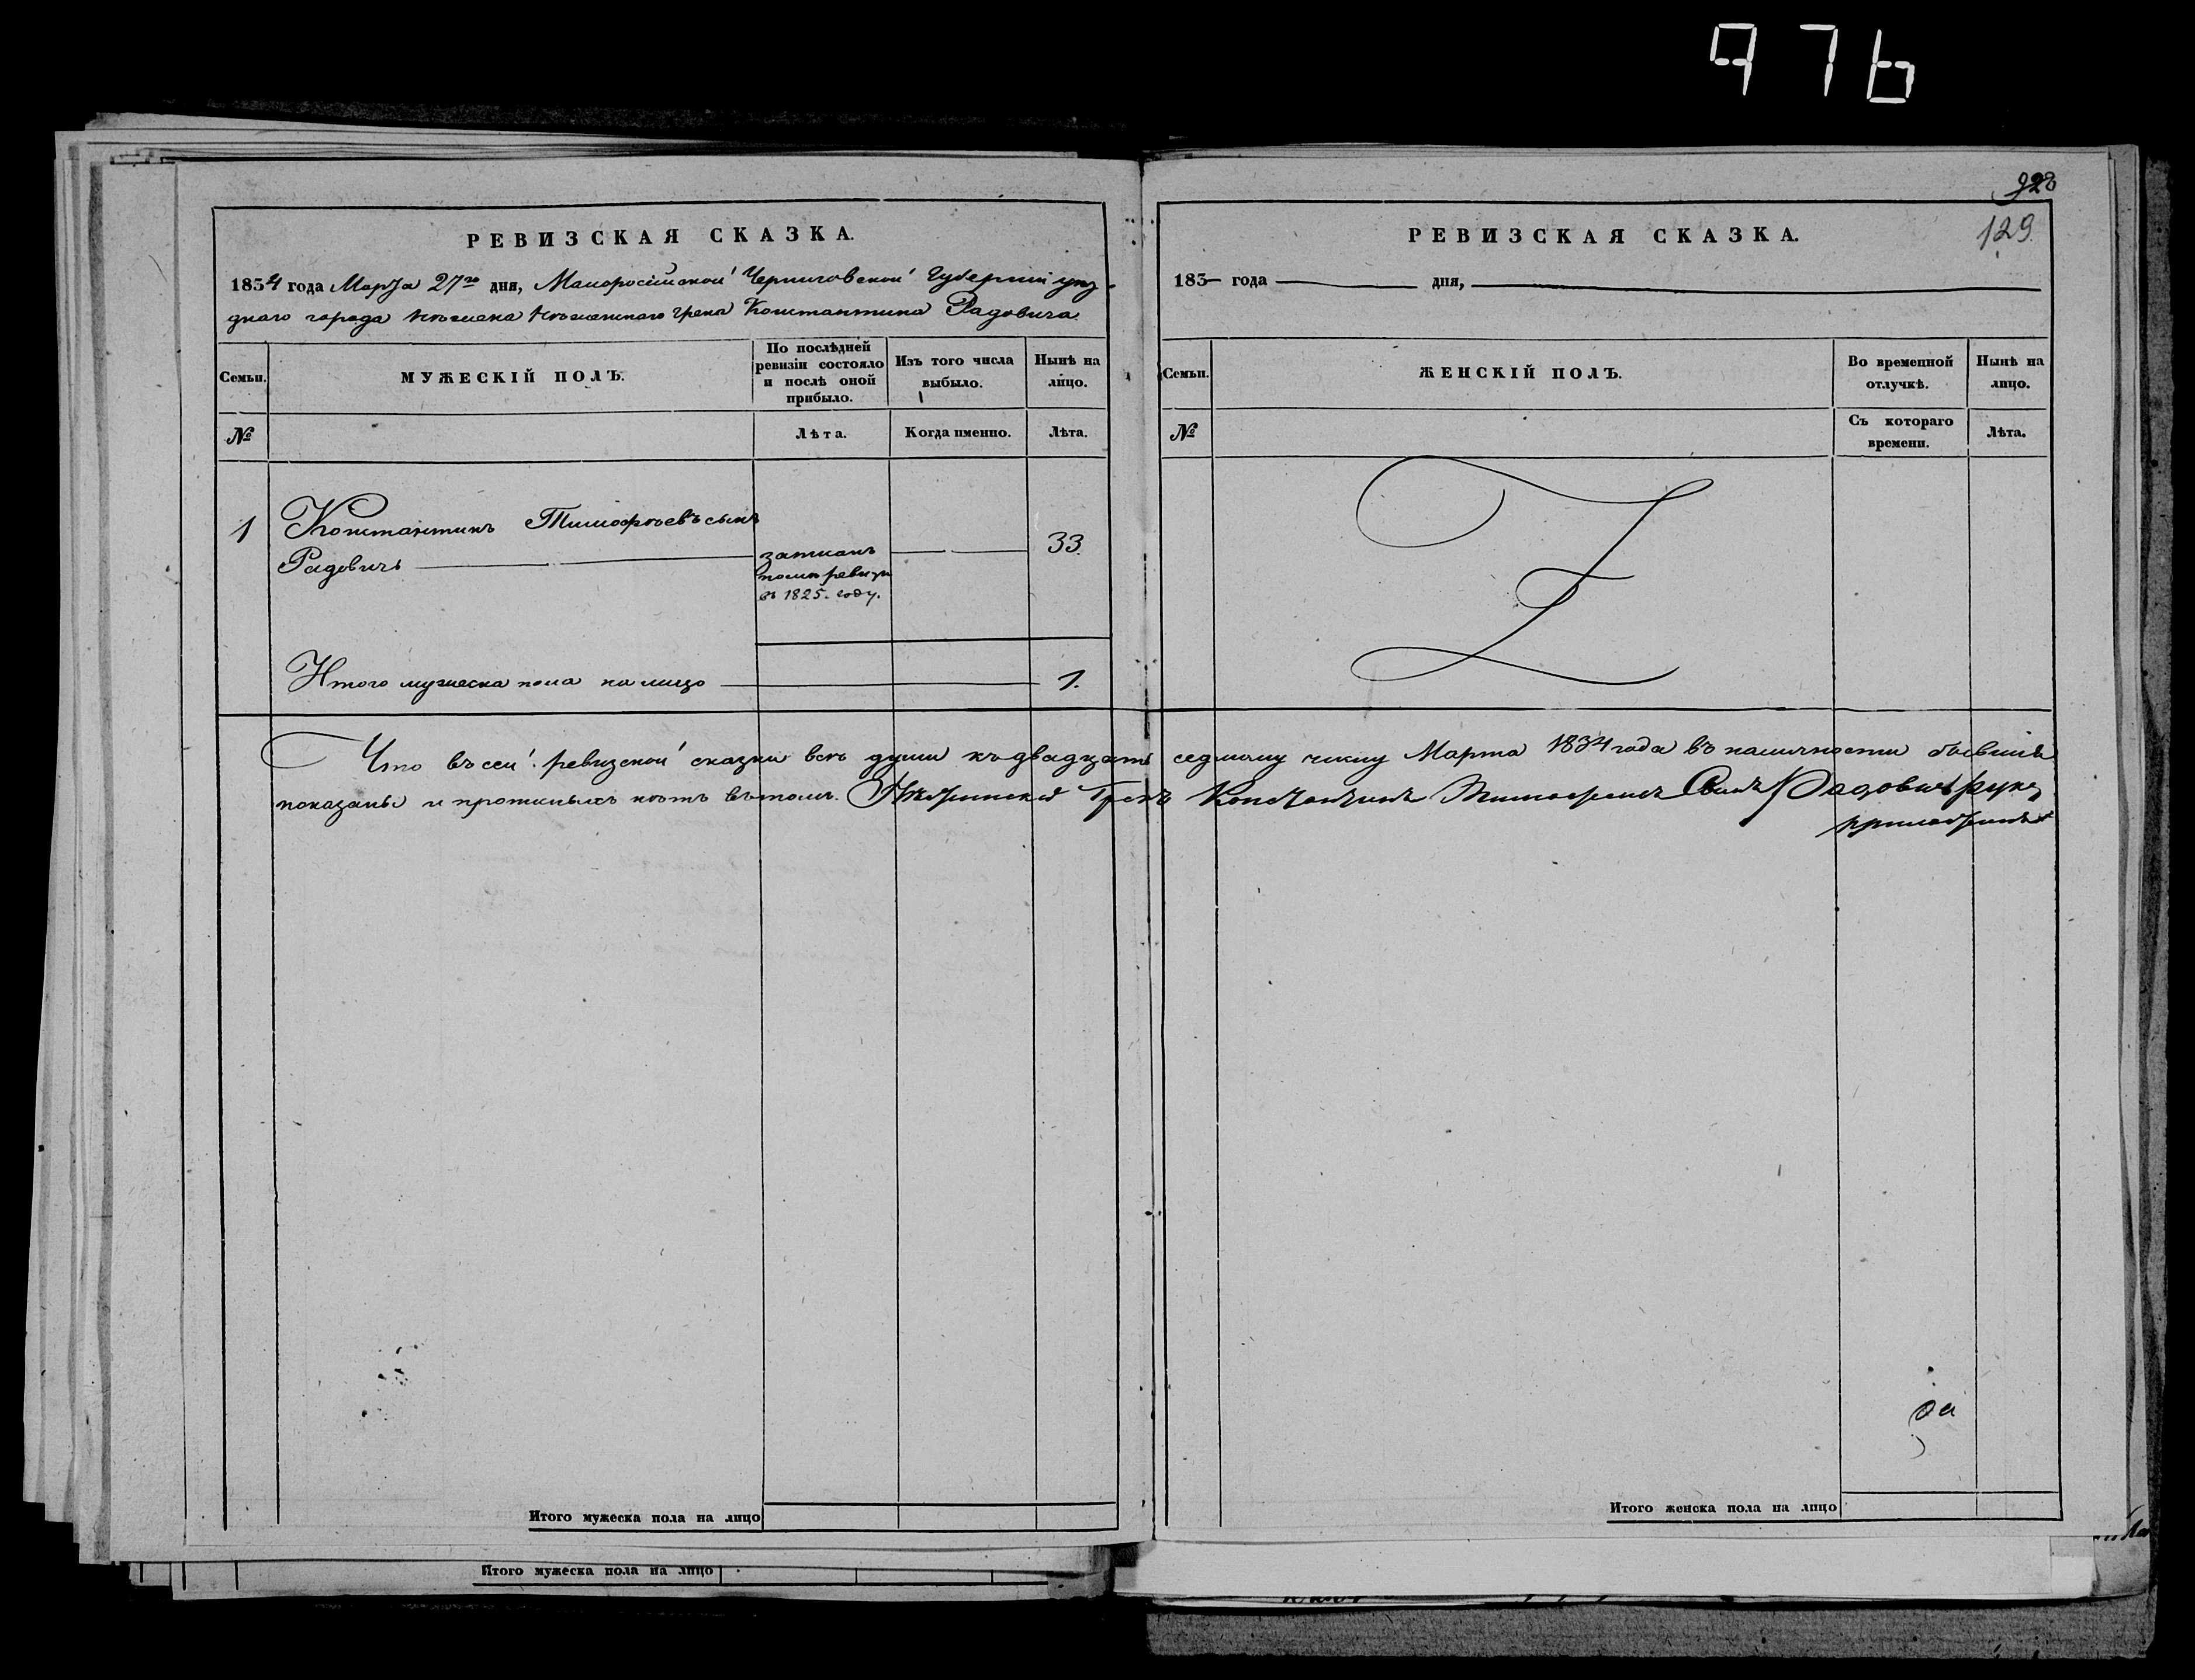 976
РЕВИЗСКАЯ СКАЗКА.
1834 года Марта 27го дня, Малоросійской Черниговской Губерніи уѣз-
днаго города Нѣжина Нѣжинскаго грека Константина Радовича
Семьи.
МУЖЕСКІЙ ПОЛЪ.
По послѣдней ревизіи состояло и послѣ оной прибыло.
Изъ того числа выбыло.
Нынѣ на лицо.
№
Лѣта.
Когда именно.
Лѣта.
1
Константинъ Тимофѣевъ сынъ
Радовичъ
записанъ
послѣ ревизіи
въ 1825. году.
33.
Итого мужеска пола на лицо
1.
928
129.
РЕВИЗСКАЯ СКАЗКА.
183– года дня,
Семьи.
ЖЕНСКІЙ ПОЛЪ.
Во временной отлучкѣ.
Нынѣ на лицо.
№
Съ котораго времени.
Лѣта.
Что въ сей ревизской сказки всѣ души къ двадцать седмому числу Марта 1834 года въ наличности бывшія
показаны и прописныхъ нѣтъ въ томъ. Нѣжинскій Грекъ Константинъ Тимофеевъ Сынъ Радовичъ руку
приложилъ
да
Итого мужеска пола на лицо
Итого женска пола на лицо
Итого мужеска пола на лицо